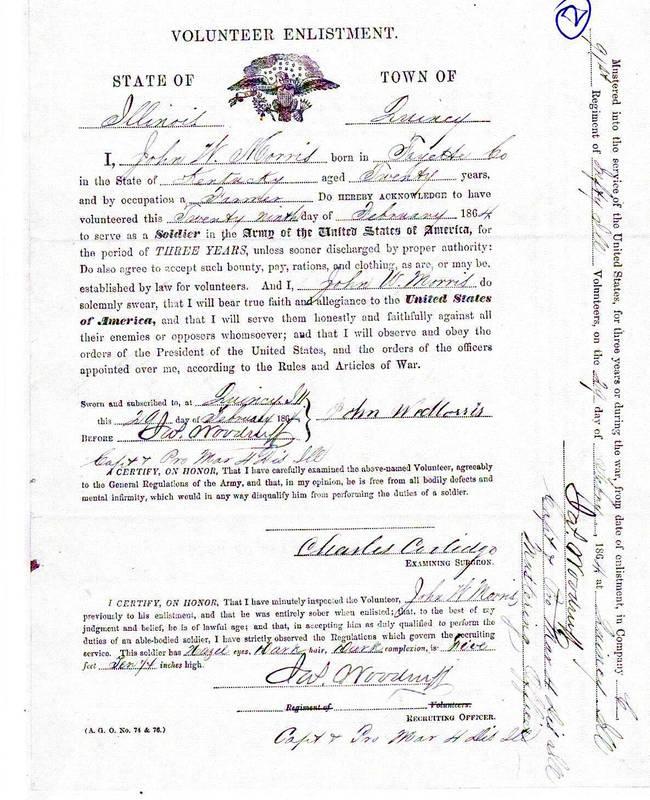 2
VOLUNTEER ENLISTMENT.
STATE OF TOWN OF
Illinois Quincy
I, John W. Morris born in Fayette Co
in the State of Kentucky aged Twenty years,
and by occupation a Farmer Do HEREBY ACKNOWLEDGE to have
volunteered this Twenty ninth day of February 1864
to serve as a Soldier in the Army of the United States of America, for
the period of THREE YEARS, unless sooner discharged by proper authority:
Do also agree to accept such bounty, pay, rations, and clothing, as are, or may be,
established by law for volunteers. And I, John W. Morris do
solemnly swear, that I will bear true faith and allegiance to the United States
of America, and that I will serve them honestly and faithfully against all
their enemies or opposers whomsoever; and that I will observe and obey the
orders of the President of the United States, and the orders of the officers
appointed over me, according to the Rules and Articles of War.
Sworn and subscribed to, at Quincy Ill
this 29 day of February 1864
John W Morris
BEFORE Jas Woodruff
Capt & Pro Mar 4 Dis Ill
I CERTIFY, ON HONOR, That I have carefully examined the above-named Volunteer, agreeably
to the General Regulations of the Army, and that, in my opinion, he is free from all bodily defects and
mental infirmity, which would in any way disqualify him from performing the duties of a soldier.
Charles
EXAMINING SURGEON.
I CERTIFY, ON HONOR, That I have minutely inspected the Volunteer, John W Morris,
previously to his enlistment, and that he was entirely sober when enlisted; that, to the best of my
judgment and belief, he is of lawful age; and that, in accepting him as duly qualified to perform the
duties of an able-bodied soldier, I have strictly observed the Regulations which govern the recruiting
service. This soldier has Hazel eyes, Dark hair, Dark complexion, is five
feet Ten 3/4 inches high.
Jas Woodruff
Regiment of Volunteers.
RECRUITING OFFICER.
Capt & Pro Mar 4 Dis Ill
(A. G. O. No. 74 & 76.)
Mustered into the service of the United States, for three years or during the war, from date of enlistment, in Company
Regiment of Ill Volunteers, on the 29 day of Feby, 1864 at Quincy Ill
Jas Woodruff
Capt & Pro Mar 4 Dis Ill
Mustering Officer